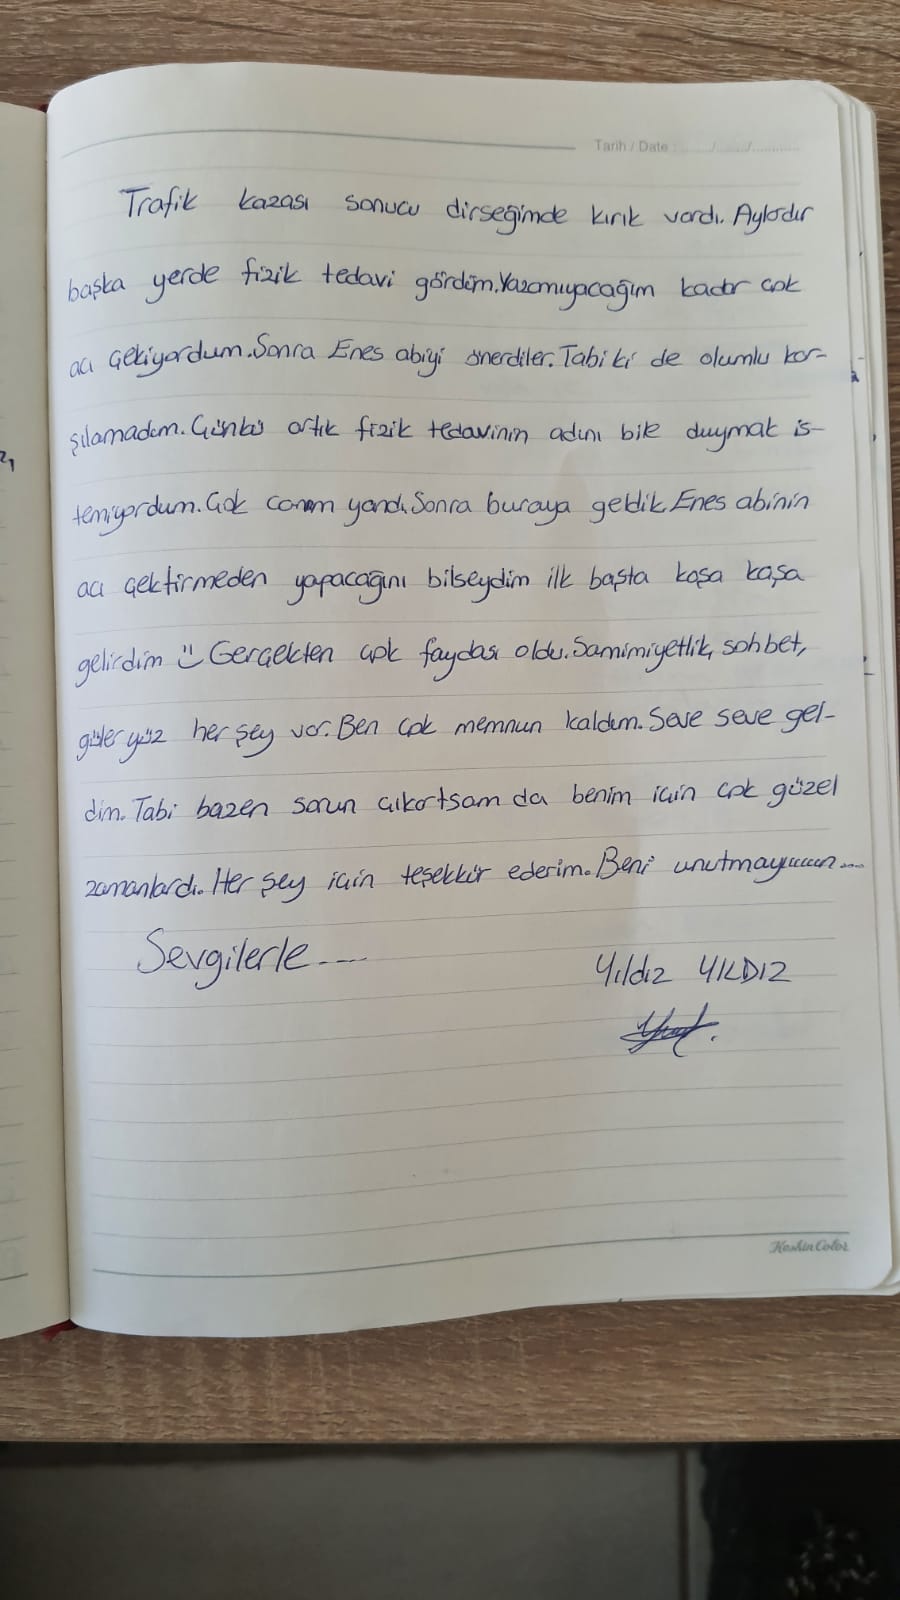 Tarih / Date ....../....../............
Trafik kazası sonucu dirseğimde kırık vardı. Aylardır
başka yerde fizik tedavi gördüm. Yazamıyacağım kadar çok
acı çekiyordum. Sonra Enes abiyi önerdiler. Tabi ki de olumlu kar-
şılamadım. Çünkü artık fizik tedavinin adını bile duymak is-
temiyordum. Çok canım yandı. Sonra buraya geldik. Enes abinin
acı çektirmeden yapacağını bilseydim ilk başta koşa koşa
gelirdim Gerçekten çok faydası oldu. Samimiyetlik, sohbet,
güler yüz her şey var. Ben çok memnun kaldım. Seve seve gel-
dim. Tabi bazen sorun çıkartsam da benim için çok güzel
zamanlardı. Her şey için teşekkür ederim. Beni unutmayııııın....
Sevgilerle....
Yıldız YILDIZ
Keskin Color